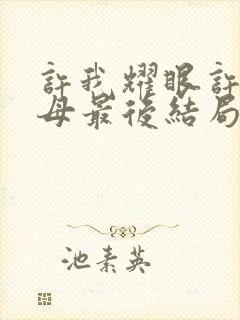 許我耀眼許
母最後結局
池素英